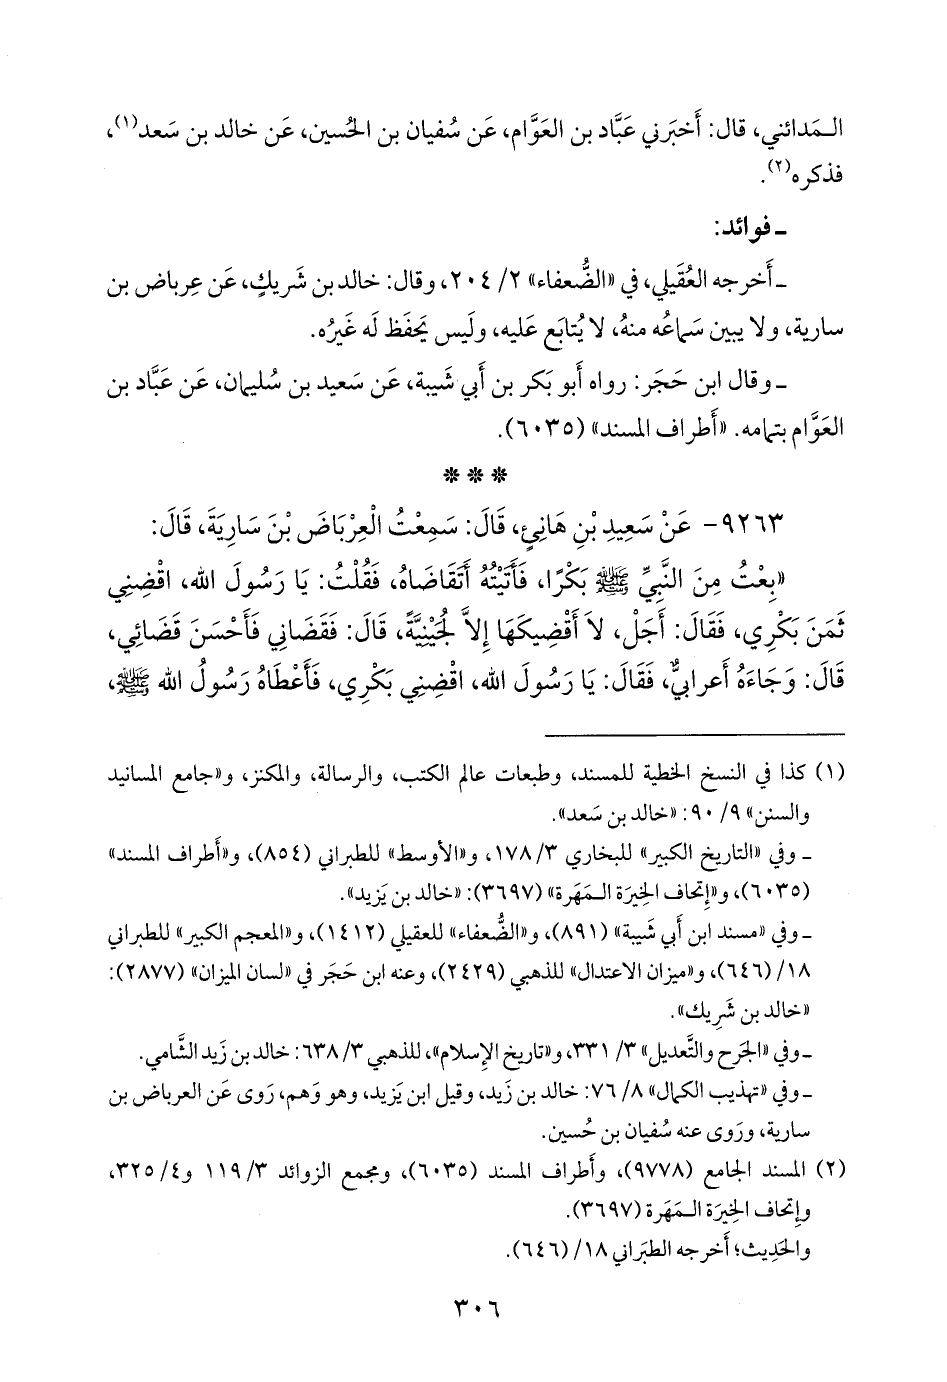 الـمَدائني، قال: أَخبَرني عَبَّاد بن العَوَّام، عَن سُفيان بن الحُسين، عَن خالد بن سَعد(١)،
فذكره(٢).
ـ فوائد:
ـ أَخرجه العُقَيلي، في «الضُّعفاء» ٢/ ٢٠٤، وقال: خالد بن شَريكٍ، عَن عِرباض بن
سارية، ولا يبين سَماعُه منهُ، لا يُتابَع عَليه، ولَيس يَحفَظ لَه غَيرُه.
ـ وقال ابن حَجَر: رواه أَبو بَكر بن أَبي شَيبة، عَن سَعيد بن سُليمان، عَن عَبَّاد بن
العَوَّام بتمامه. «أَطراف المسند» (٦٠٣٥).
* * *
٩٢٦٣- عَنْ سَعِيدِ بْنِ هَانِئٍ، قَالَ: سَمِعْتُ الْعِرْبَاضَ بْنَ سَارِيَةَ، قَالَ:
«بِعْتُ مِنَ النَّبِيِّ ﷺ بَكْرًا، فَأَتَيْتُهُ أَتَقَاضَاهُ، فَقُلْتُ: يَا رَسُولَ الله، اقْضِنِي
ثَمَنَ بَكْرِي، فَقَالَ: أَجَلْ، لاَ أَقْضِيكَهَا إِلاَّ لُجَيْنِيَّةً، قَالَ: فَقَضَانِي فَأَحْسَنَ قَضَائِي،
قَالَ: وَجَاءَهُ أَعرابيٌّ، فَقَالَ: يَا رَسُولَ الله، اقْضِنِي بَكْرِي، فَأَعْطَاهُ رَسُولُ الله ﷺ،
(١) كذا في النسخ الخطية للمسند، وطبعات عالم الكتب، والرسالة، والمكنز، و«جامع المسانيد
والسنن» ٩/ ٩٠: «خالد بن سَعد».
ـ وفي «التاريخ الكبير» للبخاري ٣/ ١٧٨، و«الأوسط» للطبراني (٨٥٤)، و«أَطراف المسند»
(٦٠٣٥)، و«إتحاف الخِيرَة الـمَهَرة» (٣٦٩٧): «خالد بن يَزيد».
ـ وفي «مسند ابن أَبي شَيبة» (٨٩١)، و«الضُّعفاء» للعقيلي (١٤١٢)، و«المعجم الكبير» للطبراني
١٨/ (٦٤٦)، و«ميزان الاعتدال» للذهبي (٢٤٢٩)، وعنه ابن حَجَر في «لسان الميزان» (٢٨٧٧):
«خالد بن شَريك».
ـ وفي «الجَرح والتَّعديل» ٣/ ٣٣١، و«تاريخ الإسلام»، للذهبي ٣/ ٦٣٨: خالد بن زَيد الشَّامي.
ـ وفي «تهذيب الكمال» ٨/ ٧٦: خالد بن زَيد، وقيل ابن يَزيد، وهو وَهم، رَوى عَن العرباض بن
سارية، ورَوى عنه سُفيان بن حُسين.
(٢) المسند الجامع (٩٧٧٨)، وأَطراف المسند (٦٠٣٥)، ومجمع الزوائد ٣/ ١١٩ و٤/ ٣٢٥،
وإتحاف الخِيرَة الـمَهَرة (٣٦٩٧).
والحَدِيث؛ أَخرجه الطبَراني ١٨/ (٦٤٦).
٣٠٦